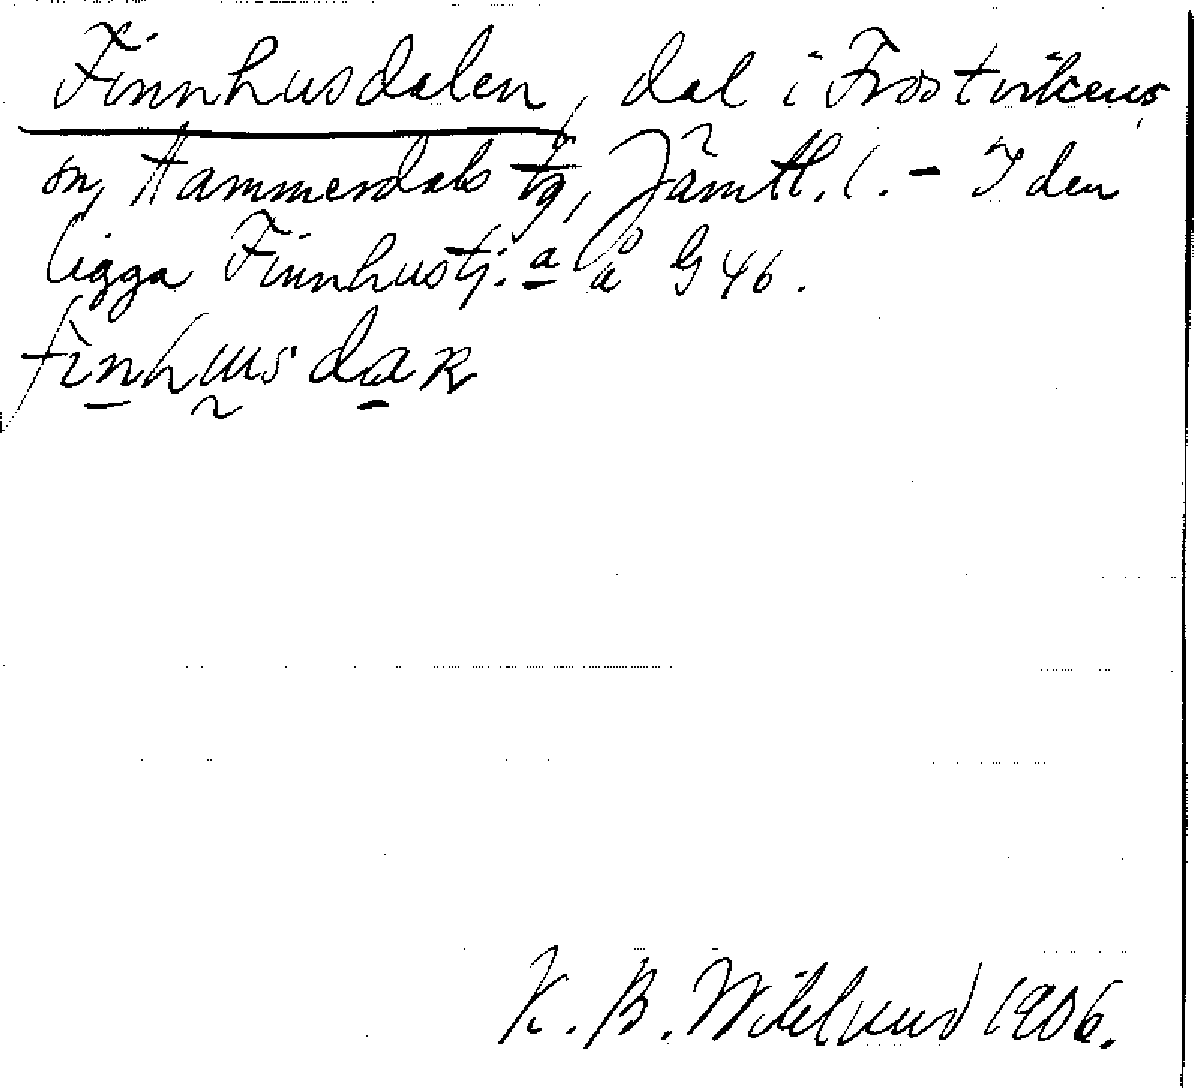 Finnhusdalen, dal i Frostvikens
sn, Hammerdals tg, Jämtl. l. – I den
ligga Finnhustj. a på G 46.
finhusdaʀ
K. B. Wiklund 1906.